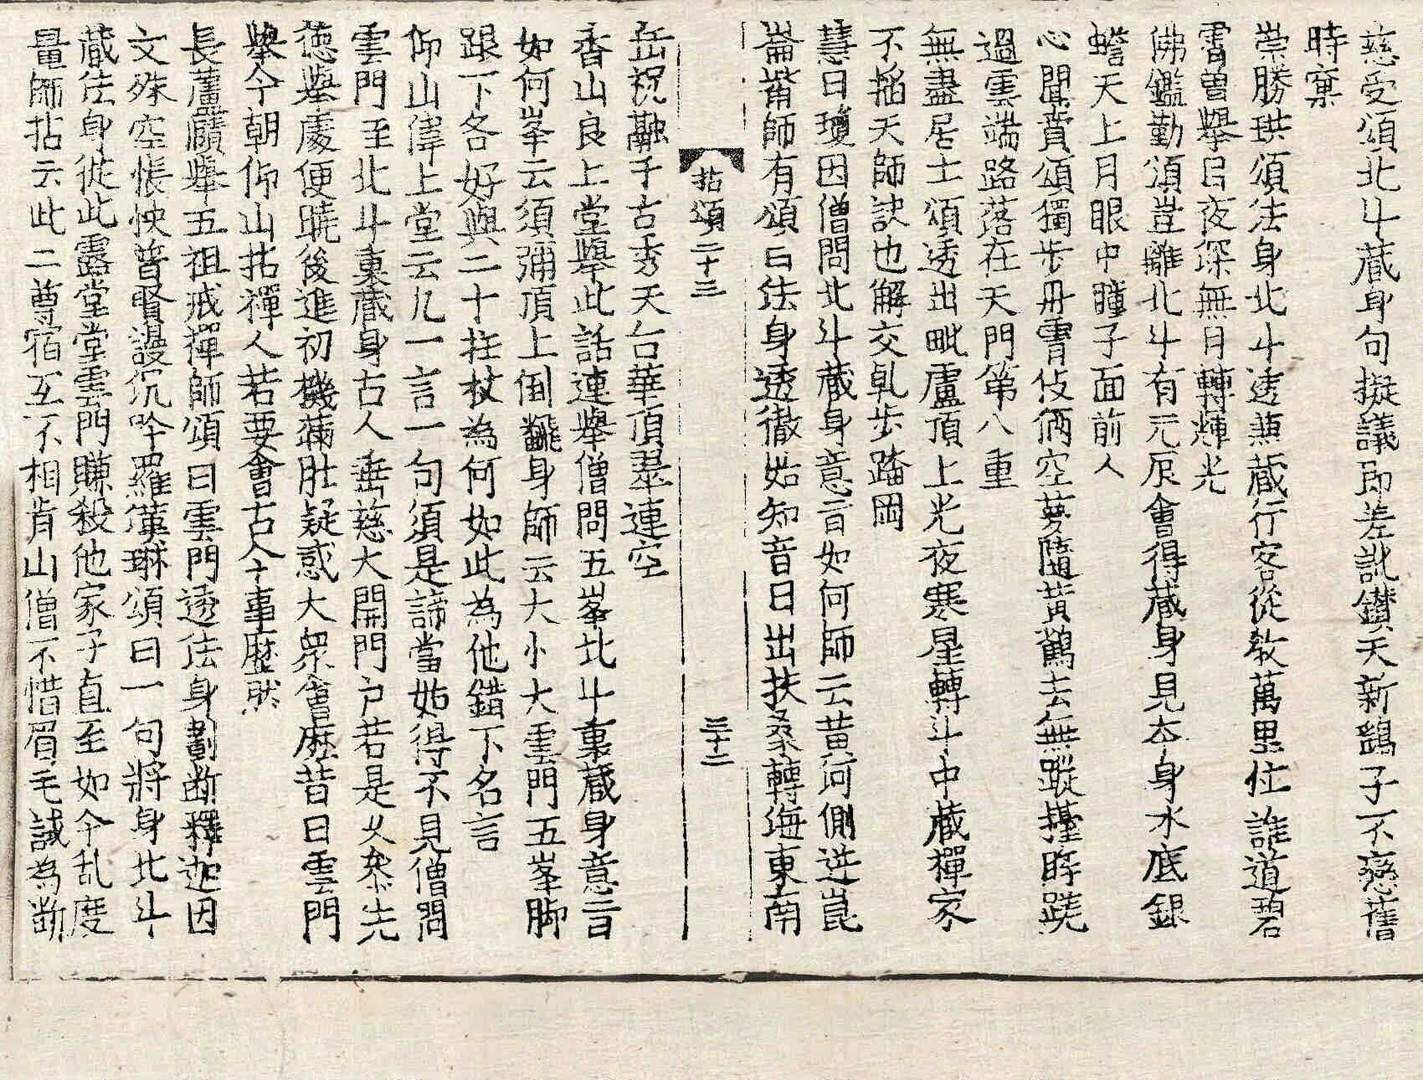 慈受頌北斗藏身句擬議即差訛鑚天新鷂子不戀舊
時窠
崇勝珙頌法身北斗透兼藏行客從教萬里忙誰道碧
霄曽擧目夜深無月轉輝光
佛鑑勤頌豈離北斗有元辰會得藏身見本身水底銀
蟾天上月眼中瞳子面前人
心聞賁頌獨步丹霄伎倆空夢隨黃鶴去無蹤擡眸蹺
過雲端路落在天門第八重
無盡居士頌透出毗盧頂上光夜寒星轉斗中藏禪家
不掐天師訣也解交乹步踏罡
慧日瓊因僧問北斗藏身意旨如何師云黃河側迸崑
崙觜師有頌曰法身透徹始知音日出扶桑轉海東南
拈頌二十三 三十二
岳祝融千古秀天台華頂翠連空
香山良上堂擧此話連擧僧問五峯北斗裏藏身意旨
如何峯云須彌頂上倒飜身師云大小大雲門五峯脚
跟下各好與二十拄杖為何如此為他錯下名言
仰山偉上堂云凡一言一句須是諦當始得不見僧問
雲門至北斗裏藏身古人垂慈大開門户若是久叅先
德擧處便曉後進初機滿肚疑惑大衆會麽昔日雲門
擧今朝仰山拈禪人若要會古今事歷然
長蘆賾擧五祖戒禪師頌曰雲門透法身劃断釋迦因
文殊空悵怏普賢謾沉吟羅漢琳頌曰一句將身北斗
藏法身從此露堂堂雲門賺殺他家子直至如今乱度
量師拈云此二尊宿互不相肯山僧不惜眉毛試為断